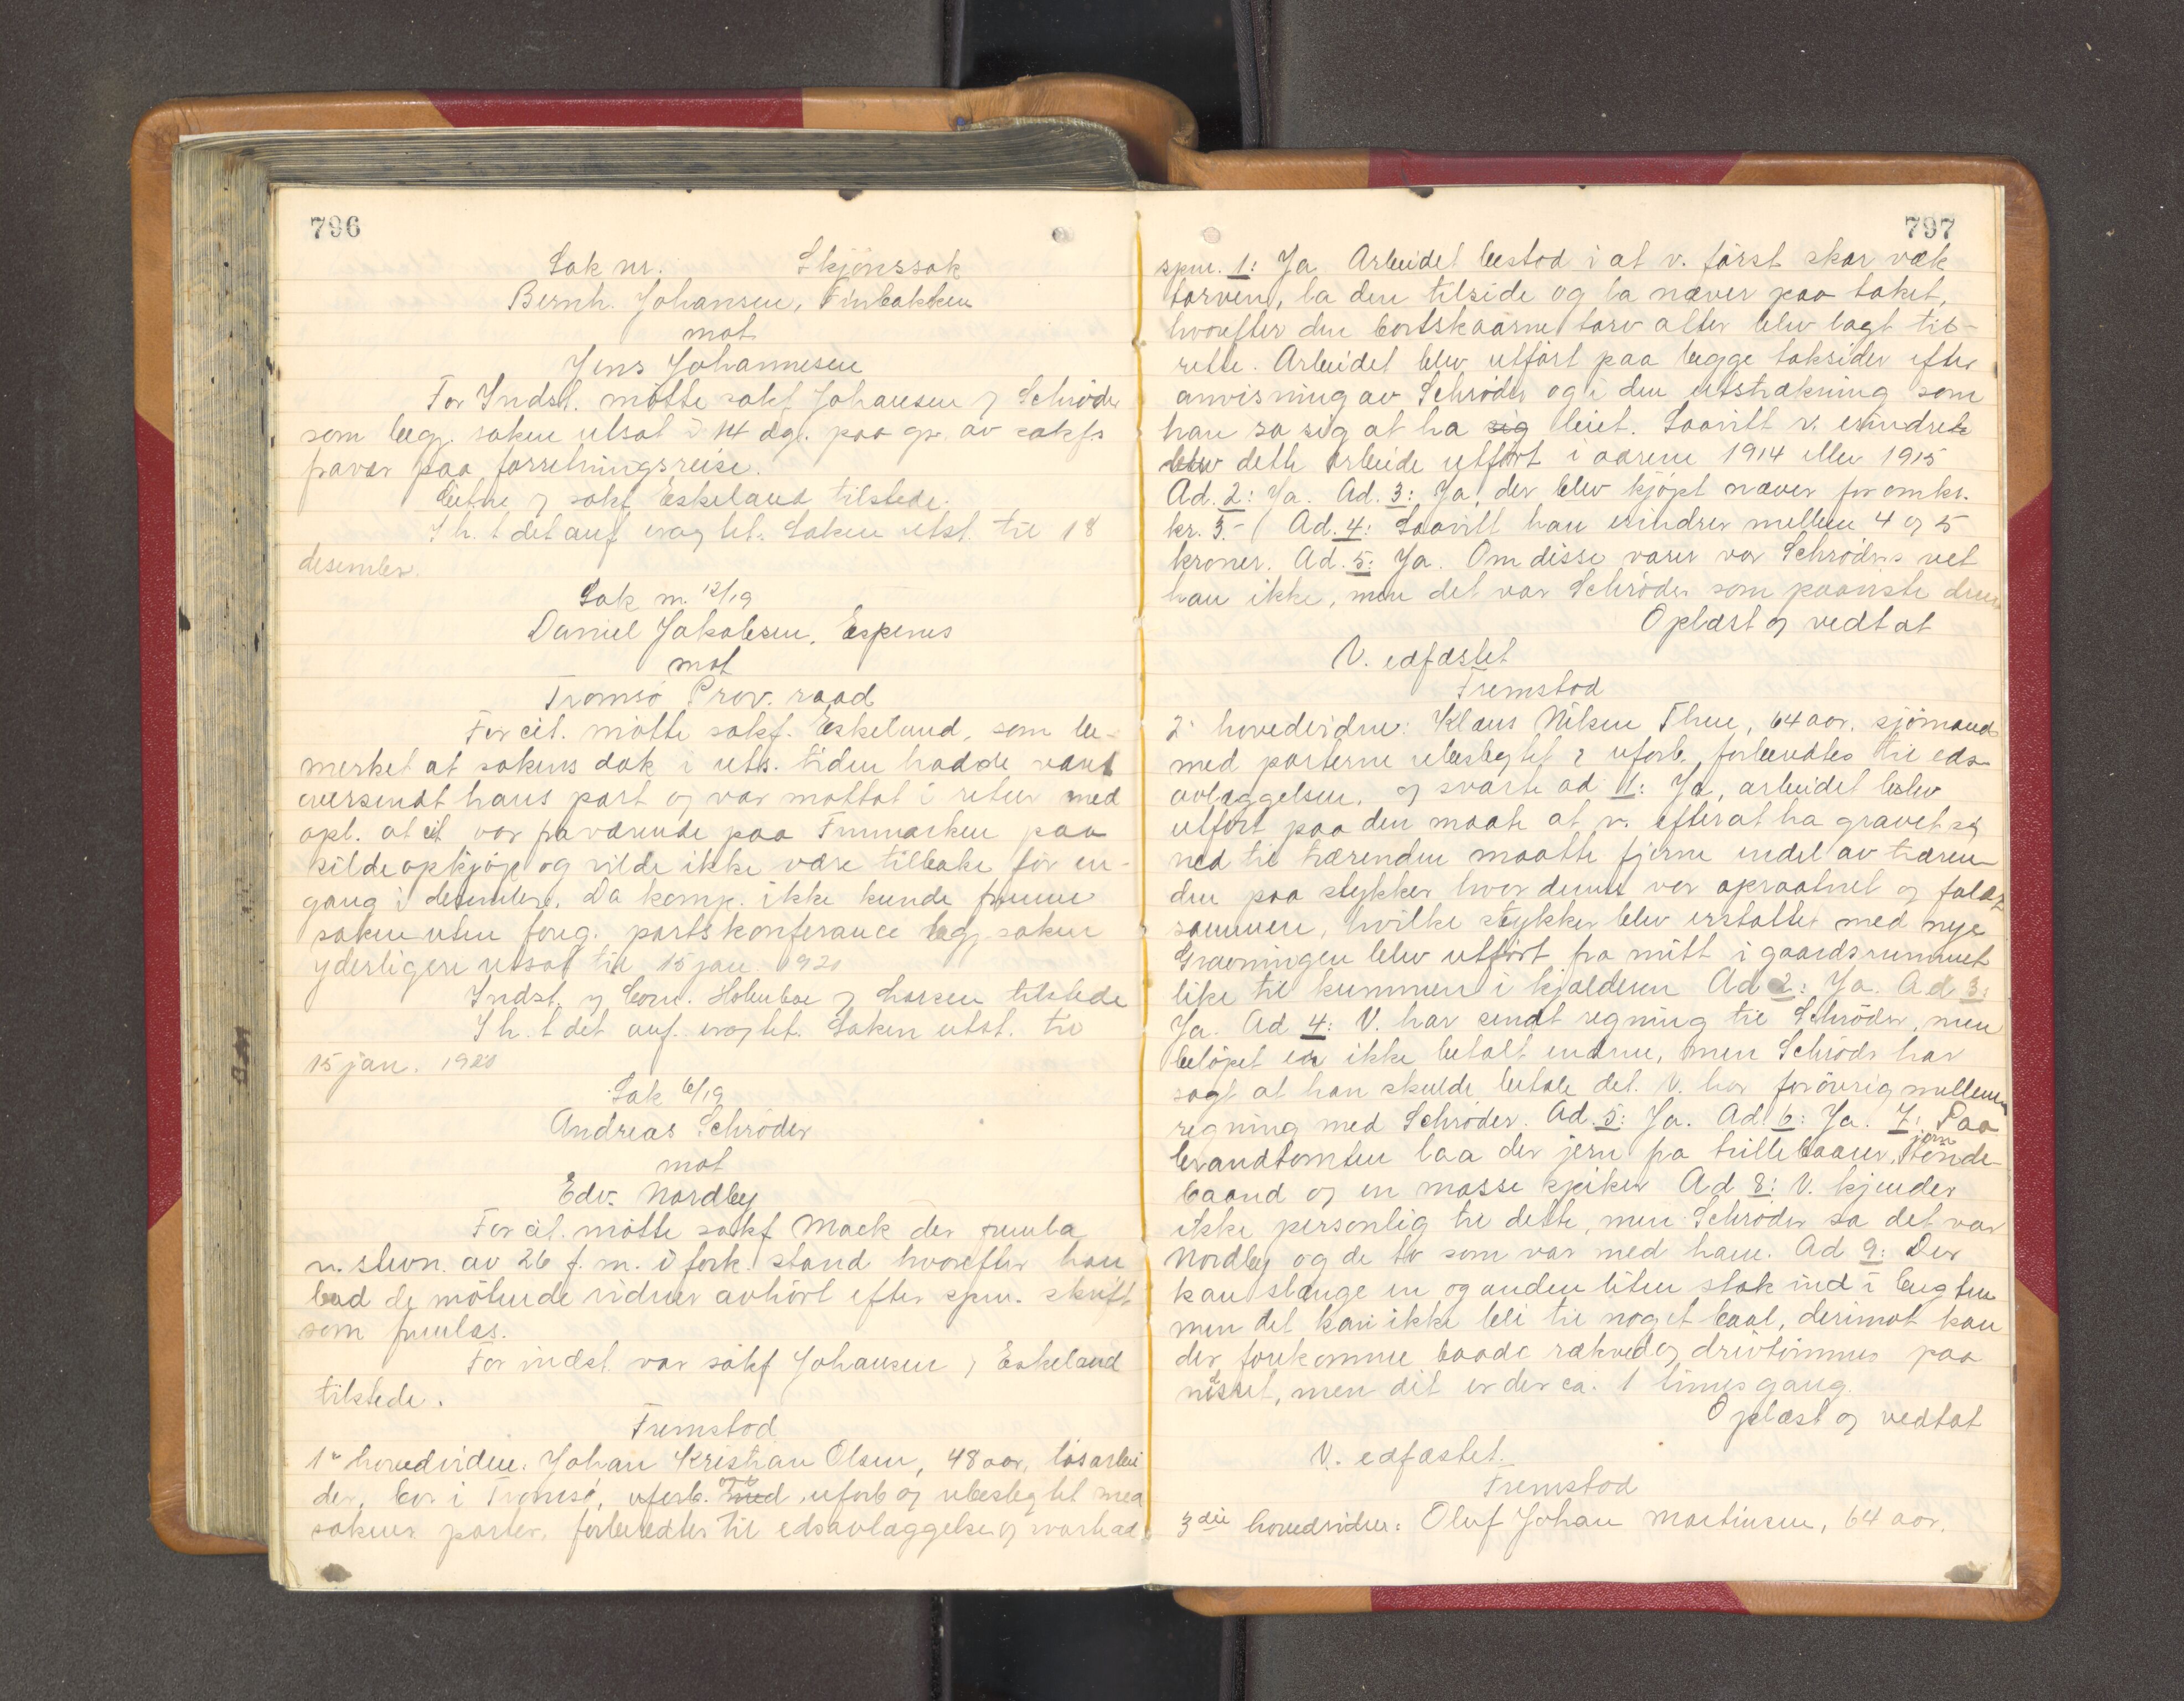 796
Sak nr. Skjönssak
Bernh. Johansen, Finbakken
mot
Jens Johannesen
For Indst. mötte sakf Johansen og Schröder
som begj. saken utsat i 14 dge. paa gr. av sakfs
fravær paa forretningsreise.
Citne og sakf Eskeland tilstede.
I h. t det anf eragtet. Saken utst. til 18
desember.
Sak nr. 12/19
Daniel Jakobsen, Espenes
mot
Tromsö Prov. raad
For cit. mötte sakf. Eskeland, som be-
merket at sakens dok i uts. tiden hadde vært
oversendt hans part og var mottat i retur med
opl. at cit var fraværende paa Finmarken paa
sildeopkjöp og vilde ikke være tilbake för en-
gang i desember. Da komp. ikke kunde fremme
saken uten foreg. partskonferance begj. saken
yderligere utsat til 15 jan. 1920
Indst. og Corn. Holmboe og Larsen tilstede
I h. t det anf. eragtet. Saken utst. til
15 jan. 1920
Sak 6/19
Andreas Schröder
mot
Edv. Nordby
For cit. mötte sakf Mack der fremla
n. stevn. av 26 f. m. i fork. stand hvorefter han
bad de mötende vidner avhört efter spm. skrift
som fremlas.
For indst var sakf Johansen, Eskeland
tilstede.
Fremstod
1ste hovedvidne. Johan Kristian Olsen, 48 aar, lösarbei
der, bor i Tromsö, uforb. med uforb og ubeslegtet med
sakens parter, forberedtes til edsavlæggelse og svarte ad
797
spm. 1: Ja. Arbeidet bestod i at v. först skar væk
torven, la den tilside og la næver paa taket,
hvorefter den bortskaarne torv atter blev lagt til-
rette. Arbeidet blev utfört paa begge taksider efter
anvisning av Schröder og i den utstrækning som
han sa sig at ha sig leiet. Saavitt v. erindret
blev dette arbeide utfört i aarene 1914 eller 1915
Ad. 2: Ja. Ad. 3: Ja, der blev kjöpt næver for omkr.
kr. 3.- Ad. 4: Saavitt han erindrer mellem 4 og 5
kroner. Ad. 5: Ja. Om disse varer var Schröders vet
han ikke, men det var Schröder som paaviste dem
Oplæst og vedtat
V. edfæstet
Fremstod
2 hovedvidne: Klaus Nilsen Thue, 64 aar, sjömand
med parterne ubeslegtet & uforb. forberedtes til eds-
avlæggelsen, og svarte ad 1: Ja, arbeidet blev
utfört paa den maate at v. efterat ha gravet sig
ned til trærenden maatte fjerne endel av træren-
den paa stykker hvor denne var opraatnet og faldt
sammen, hvilke stykker blev erstattet med nye
Gravningen blev utfört fra mitt i gaardsrummet
like til kummen i kjælderen Ad 2: Ja. Ad 3:
Ja. Ad 4: V. har sendt regning til Schröder, men
belöpet er ikke betalt endnu, men Schröder har
sagt at han skulde betale det. V. har forövrig mellem
regning med Schröder. Ad. 5: Ja. Ad. 6: Ja. 7: Paa
brandtomten laa der jern fra trillebaarer, jern tönde-
baand og en masse spiker Ad 8: V. kjender
ikke personlig til dette, men Schröder sa det var
Nordby og de to som var med ham. Ad 9: Der
kan slænge en og anden liten stok ind i bugten
men det kan ikke bli til noget baal, derimot kan
der forekomme baade rækved og drivtömmer paa
næsset, men dit er der ca. 1 times gang.
Oplæst og vedtat
V. edfæstet.
Fremstod
3die hovedvidne: Oluf Johan Martinsen, 64 aar.